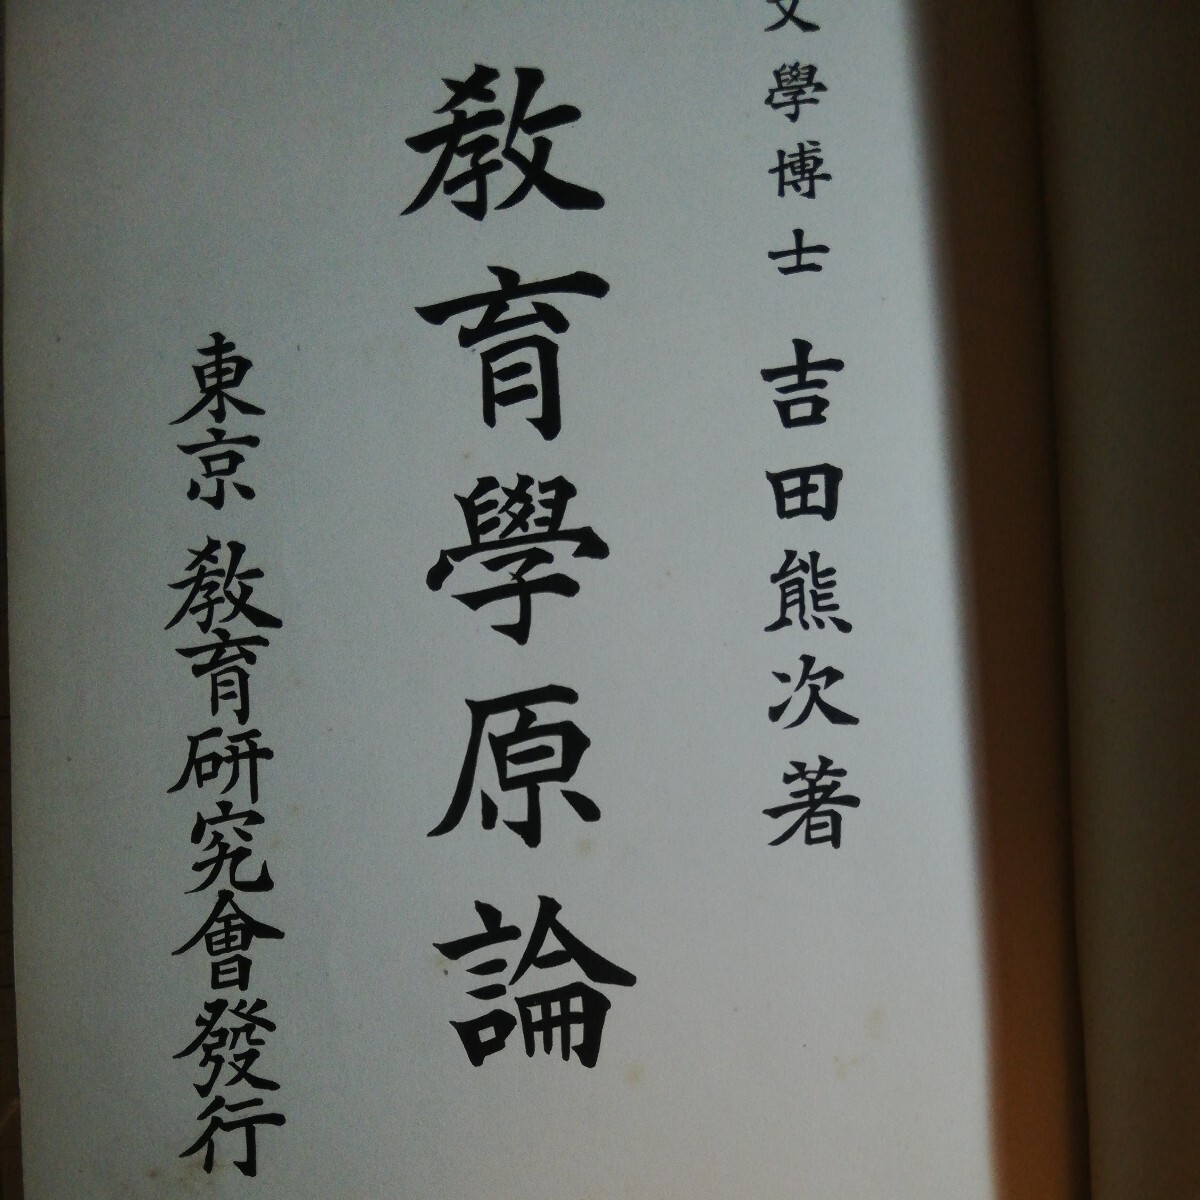 文學博士 吉田熊次著
教育學原論
東京 教育研究會發行